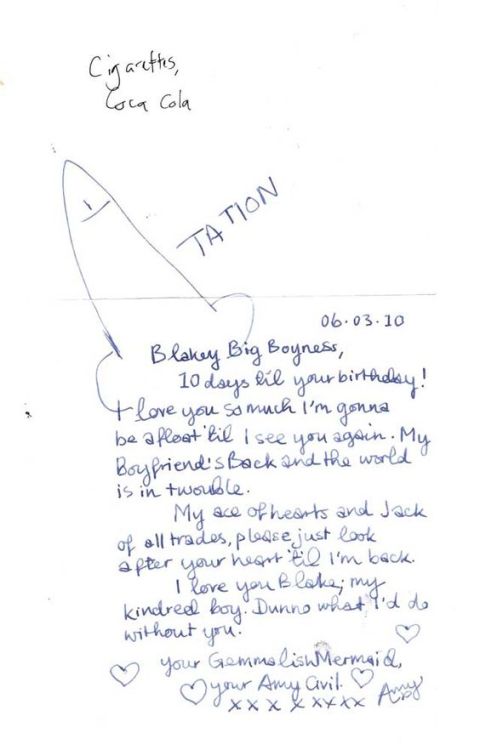 Cigarettes,
Coca Cola
TATION
06.03.10
Blakey Big Boyness,
10 days til your birthday!
I love you so much I'm gonna
be afloat 'til I see you again. My
Boyfriend's Back and the world
is in twouble.
My ace of hearts and Jack
of all trades, please just look
after your heart 'til I'm back.
I love you Blake; my
kindred boy. Dunno what I'd do
without you.
your Mermaid,
your Amy Civil. Amy
x x x x x x x x